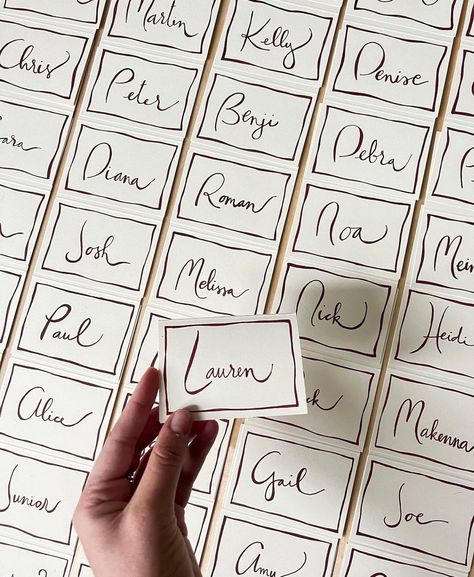 Martin
Kelly
Denise
Chris
Peter
Benji
Debra
Diana
Roman
Noa
Josh
Melissa
Nick
Paul
Lauren
Heidi
Alice
Makenna
Junior
Gail
Joe
Amy